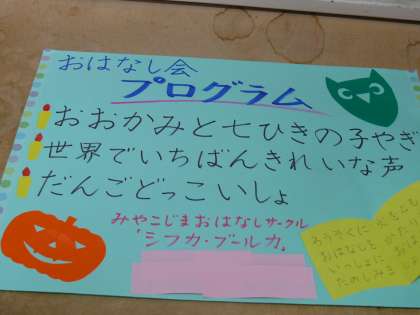 おはなし会
プログラム
おおかみと七ひきの子やぎ
世界でいちばんきれいな声
だんごどっこいしょ
みやこじまおはなしサークル
「シフカ・ブールカ」
ろうそくに
おはなしを
いっしょに
たのしみましょ